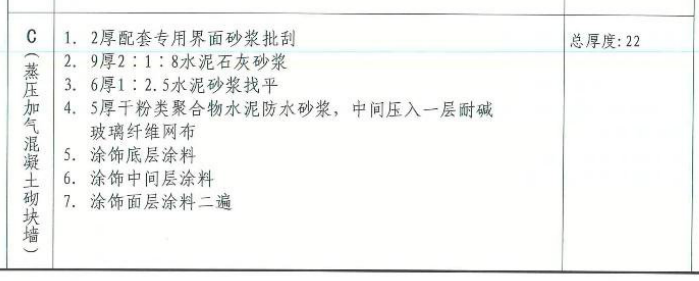 C（蒸压加气混凝土砌块墙）
1. 2厚配套专用界面砂浆批刮
2. 9厚2：1：8水泥石灰砂浆
3. 6厚1：2.5水泥砂浆找平
4. 5厚干粉类聚合物水泥防水砂浆，中间压入一层耐碱
玻璃纤维网布
5. 涂饰底层涂料
6. 涂饰中间层涂料
7. 涂饰面层涂料二遍
总厚度：22